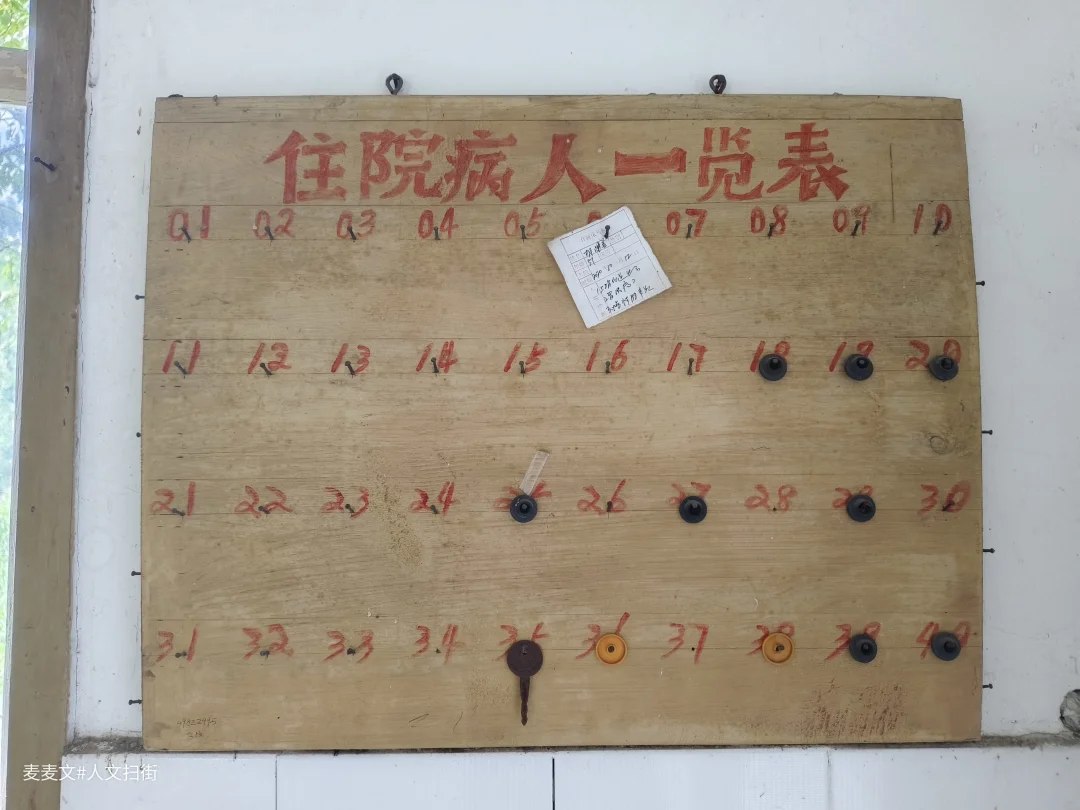 住院病人一览表
01 02 03 04 05 07 08 09 10
11 12 13 14 15 16 17 18 19 20
21 22 23 24 25 26 27 28 29 30
31 32 33 34 35 36 37 38 39 40
麦麦文#人文扫街